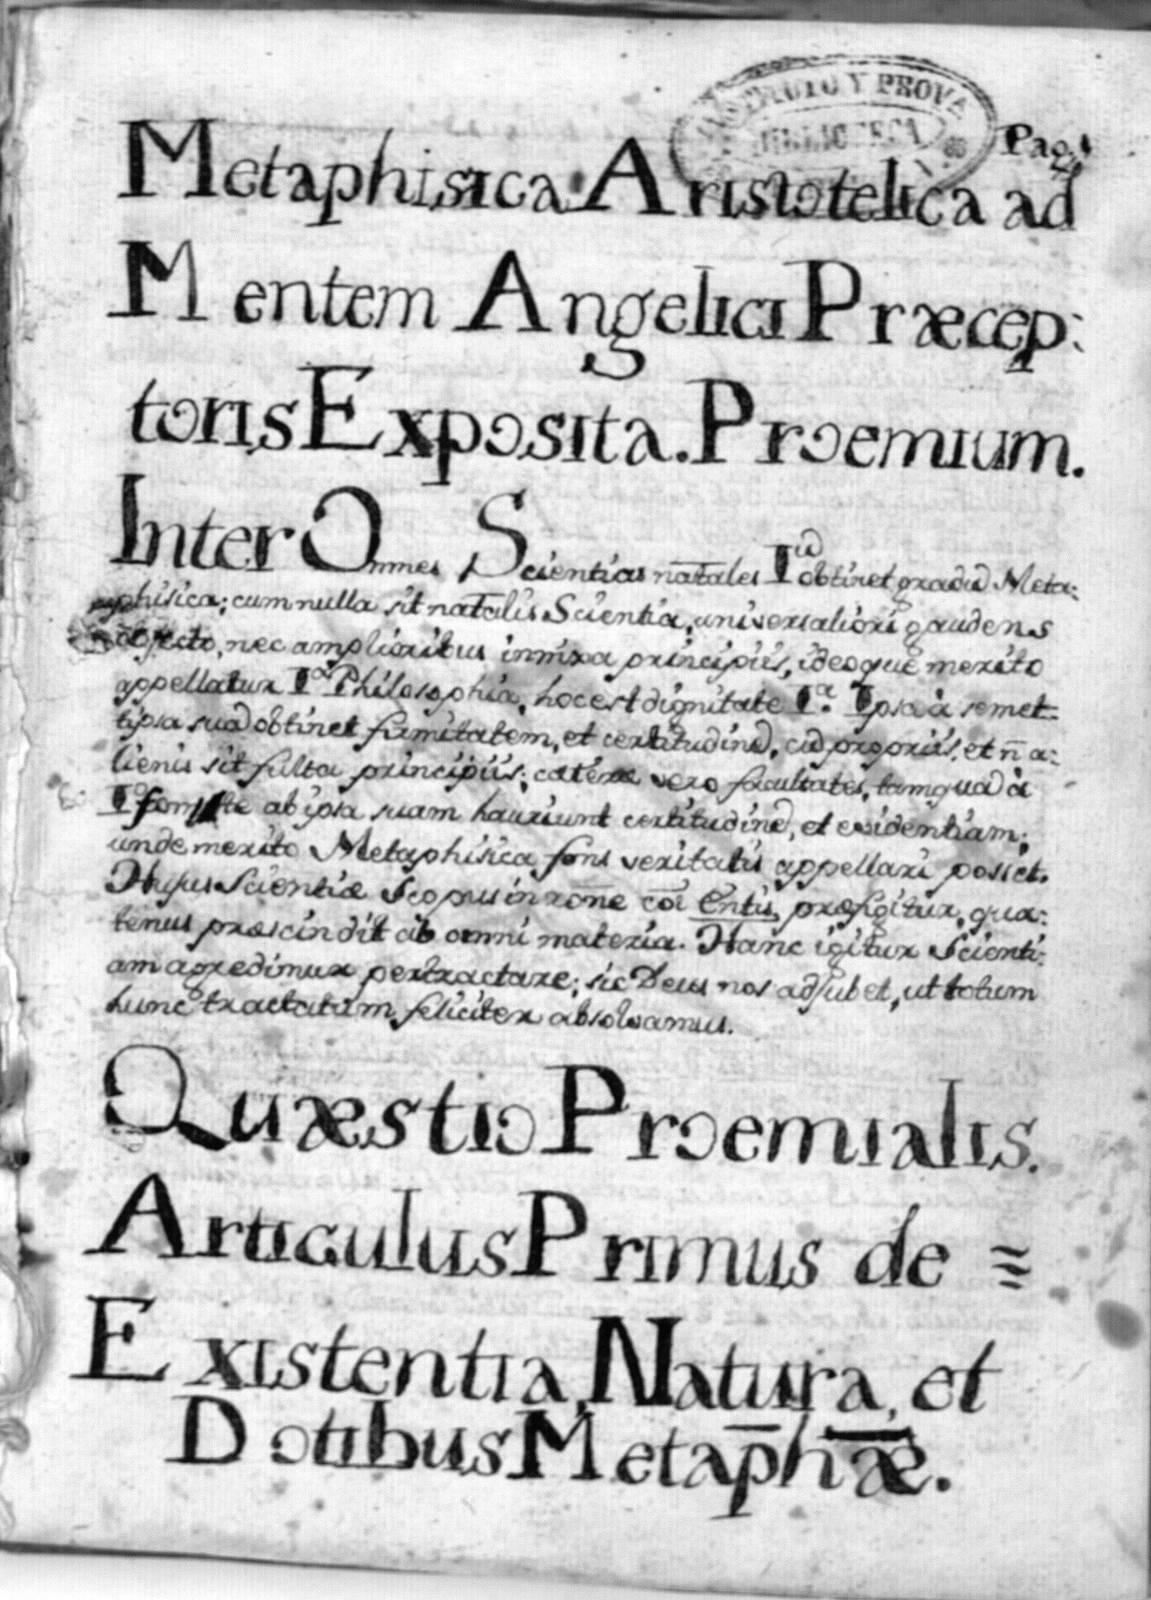 INSTITUTO Y PROVAL
BIBLIOTECA
Pag. 1
Metaphisica Aristotelica ad
Mentem Angelici Præcep:
toris Exposita. Proemium.
Inter Omnes Scientias nat̄ales Iũ obtinet gradũ Meta:
phisica; cum nulla sit nat̄alis Scientia, universaliori gaudens
objecto, nec amplioribus innixa principiis, ideoque merito
appellatur Iª Philosophia, hoc est dignitate Iª. Ipsa à semet:
tipsa suã obtinet firmitatem, et certitudinẽ, cũ propriis, et ñ a:
lienis sit fulta principiis; cæteræ vero facultates, tamquã à
Iº fonte ab ipsa suam hauriunt certitudinẽ, et evidentiam;
unde merito Metaphisica fons veritatis appellari posset.
Hujus Scientiæ Scopus in rōne cōi Entis, præfigitur, qua:
tenus præscindit ab omni materia. Hanc igitur Scienti:
am agredimur pertractare; sic Deus nos adjubet, ut totum
hunc tractatum feliciter absolvamus.
Quæstio Proemialis.
Articulus Primus de =
Existentia, Natura, et
Dotibus Metap̄hǣ.